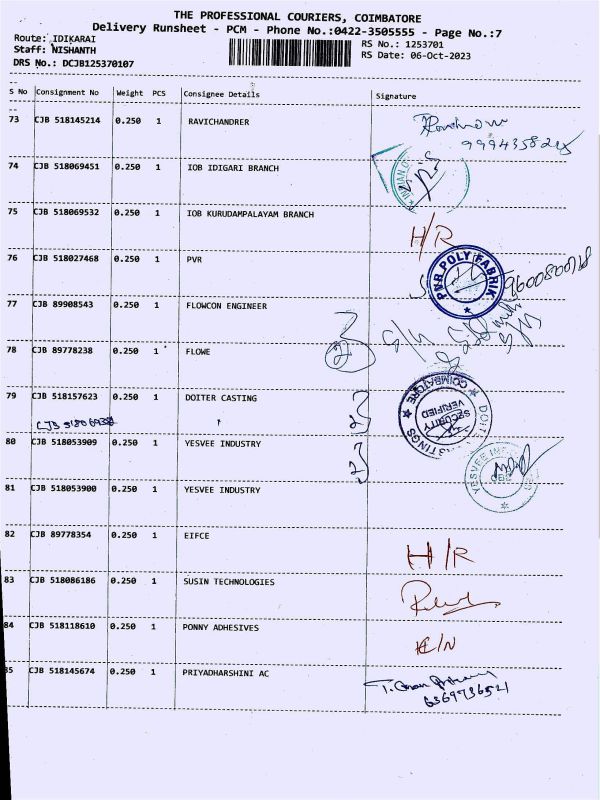 THE PROFESSIONAL COURIERS, COIMBATORE
Delivery Runsheet - PCM - Phone No.:0422-3505555 - Page No.:7
Route: IDIKARAI
RS No.: 1253701
Staff: NISHANTH
RS Date: 06-Oct-2023
DRS No.: DCJB125370107
S No Consignment No Weight PCS Consignee Details Signature
73 CJB 518145214 0.250 1 RAVICHANDRER
74 CJB 518069451 0.250 1 IOB IDIGARI BRANCH
75 CJB 518069532 0.250 1 IOB KURUDAMPALAYAM BRANCH
H/R
76 CJB 518027468 0.250 1 PVR
PVR POLY FABRIK
77 CJB 89908543 0.250 1 FLOWCON ENGINEER
78 CJB 89778238 0.250 1 FLOWE
79 CJB 518157623 0.250 1 DOITER CASTING
COIMBATORE
SECURITY
VERIFIED
80 CJB 518053909 0.250 1 YESVEE INDUSTRY
81 CJB 518053900 0.250 1 YESVEE INDUSTRY
82 CJB 89778354 0.250 1 EIFCE
H/R
83 CJB 518086186 0.250 1 SUSIN TECHNOLOGIES
84 CJB 518118610 0.250 1 PONNY ADHESIVES
85 CJB 518145674 0.250 1 PRIYADHARSHINI AC
6369736521